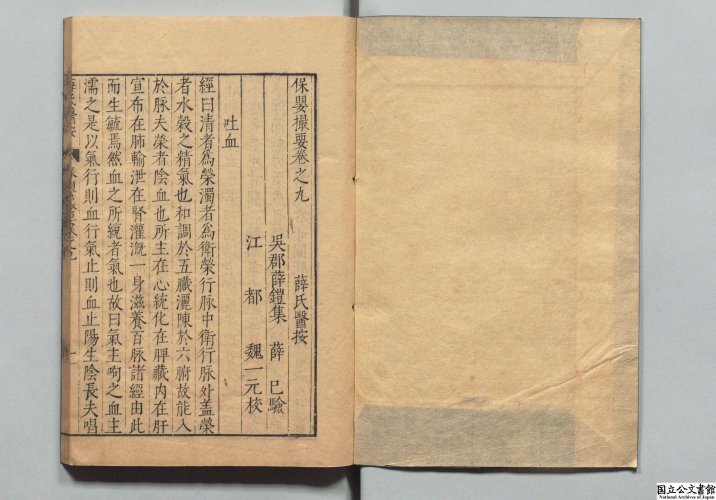 保嬰撮要卷之九　薛氏醫按
吳郡薛鎧集　薛　已驗
江　都　魏一元校
吐血
經曰清者為榮濁者為衛榮行脉中衛行脉外盖榮
者水穀之精氣也和調於五臟灑陳於六腑故能入
於脉夫榮者陰血也所主在心統化在脾藏內在肝
宣布在肺輸泄在腎灌溉一身滋養百脉諸經由此
而生毓焉然血之所統者氣也故曰氣主呴之血主
濡之是以氣行則血行氣止則血止陽生陰長夫唱
国立公文書館
National Archives of Japan